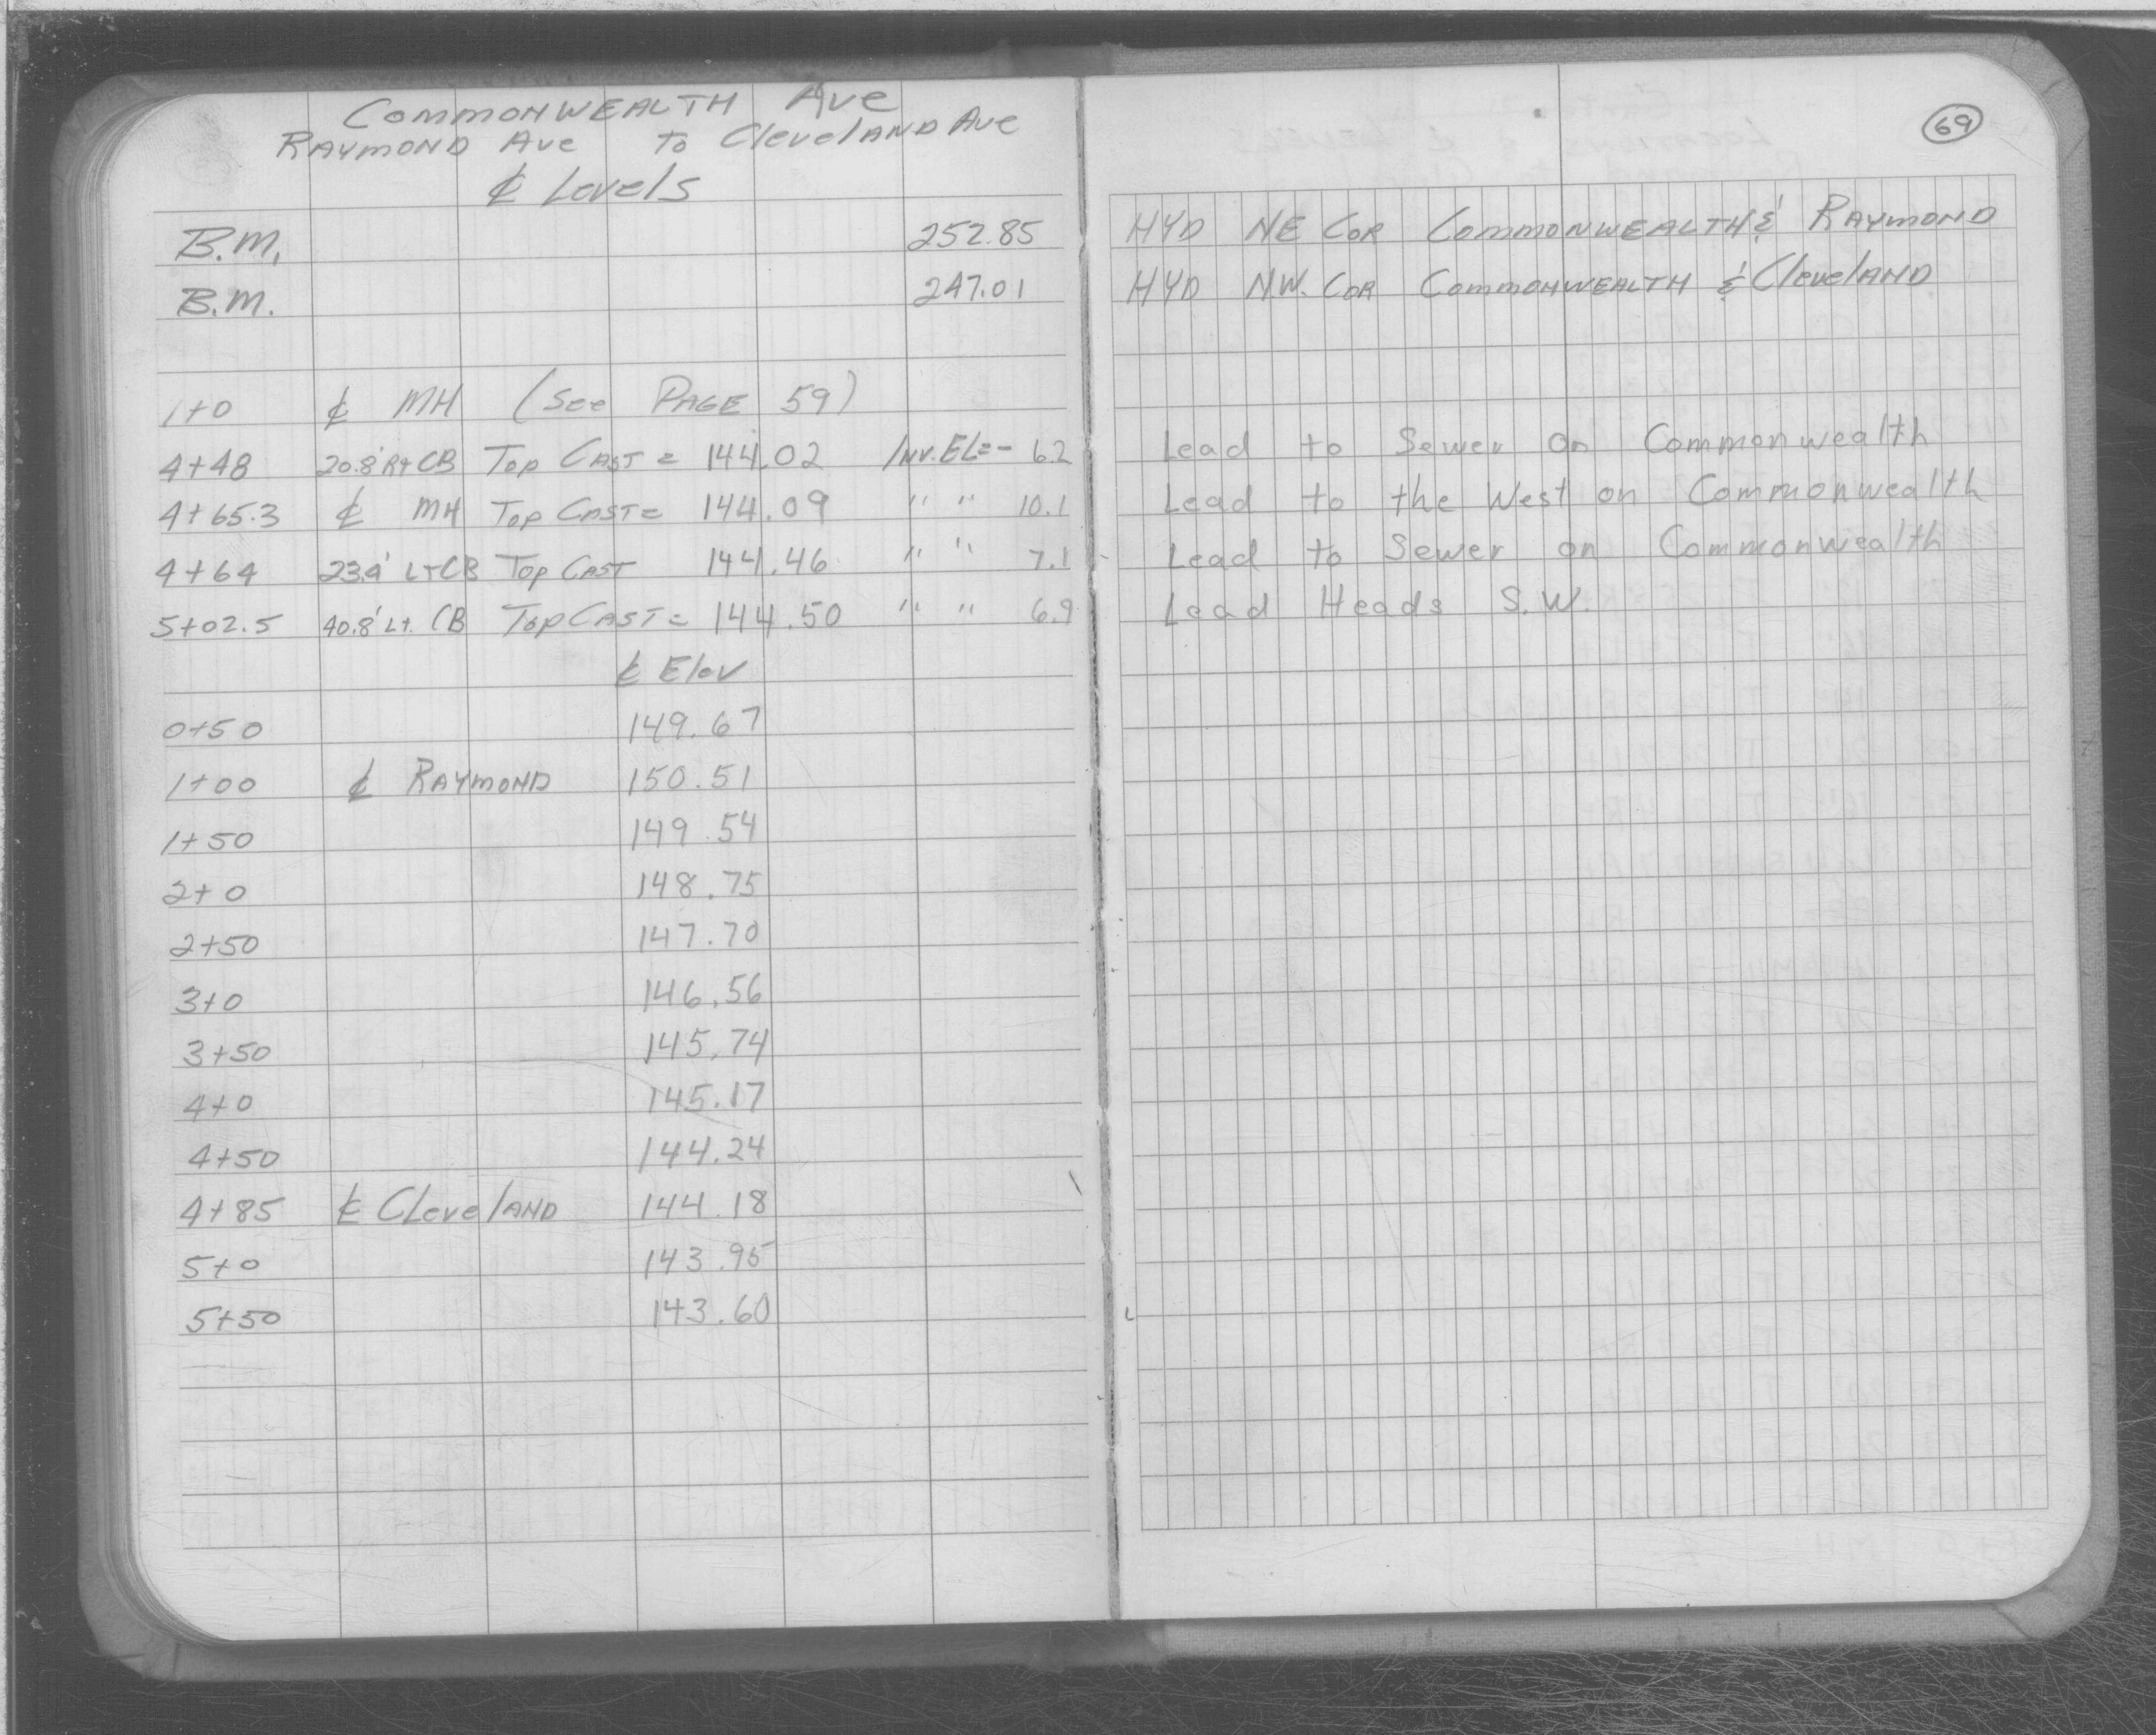 COMMONWEALTH AVE
RAYMOND AVE TO CLEVELAND AVE
℄ Levels
B.M. 252.85 HYD NE COR COMMONWEALTH & RAYMOND
B.M. 247.01 HYD N.W. COR COMMONWEALTH & CLEVELAND
1+0 ℄ MH (See PAGE 59)
4+48 20.8' Rt CB Top CAST = 144.02 INV. EL = - 6.2 Lead to Sewer on Commonwealth
4+65.3 ℄ MH Top CAST = 144.09 " " 10.1 Lead to the West on Commonwealth
4+64 23.9' LT CB Top CAST 144.46 " " 7.1 Lead to Sewer on Commonwealth
5+02.5 40.8' Lt. CB Top CAST = 144.50 " " 6.9 Lead Heads S.W.
℄ Elev
0+50 149.67
1+00 ℄ RAYMOND 150.51
1+50 149.54
2+0 148.75
2+50 147.70
3+0 146.56
3+50 145.74
4+0 145.17
4+50 144.24
4+85 ℄ CLEVELAND 144.18
5+0 143.95
5+50 143.60
69